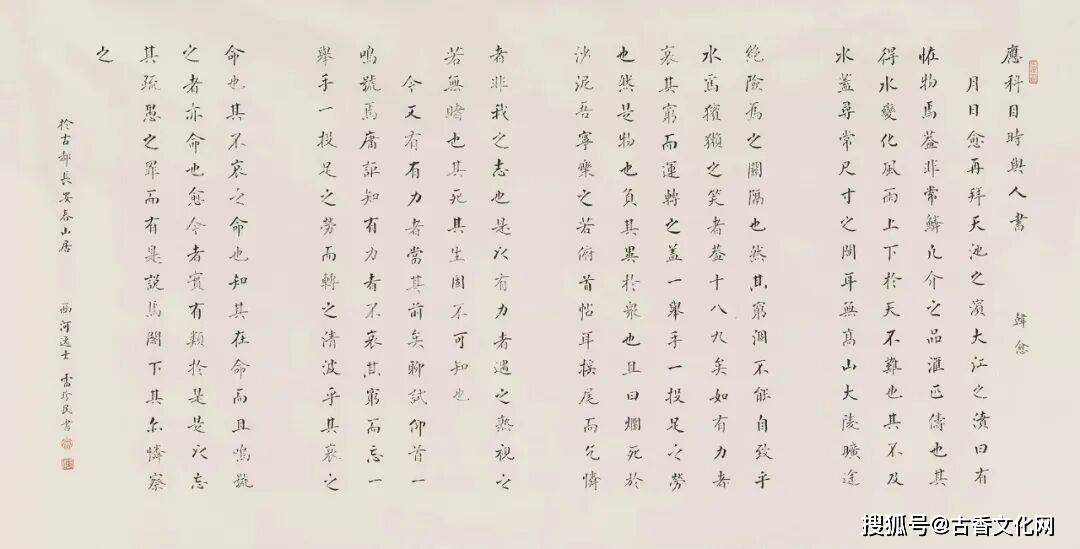 應科目時與人書 韓愈
月日愈再拜天池之濱大江之濆曰有
恠物焉蓋非常鱗凡介之品滙匹儔也其
得水變化風雨上下於天不難也其不及
水蓋尋常尺寸之間耳無高山大陵曠途
絶險為之關隔也然其窮涸不能自致乎
水為獱獺之笑者蓋十八九矣如有力者
哀其窮而運轉之蓋一舉手一投足之勞
也然是物也負其異於衆也且曰爛死於
沙泥吾寧樂之若俯首帖耳搖尾而乞憐
者非我之志也是以有力者遇之熟視之
若無睹也其死其生固不可知也
今又有有力者當其前矣聊試仰首一
鳴號焉庸詎知有力者不哀其窮而忘一
舉手一投足之勞而轉之清波乎其哀之
命也其不哀之命也知其在命而且鳴號
之者亦命也愈今者實有類於是是以忘
其疏愚之罪而有是説焉閣下其亦憐察
之
於古都長安春山居 西河逸士 雷珍民書
搜狐号@古香文化网